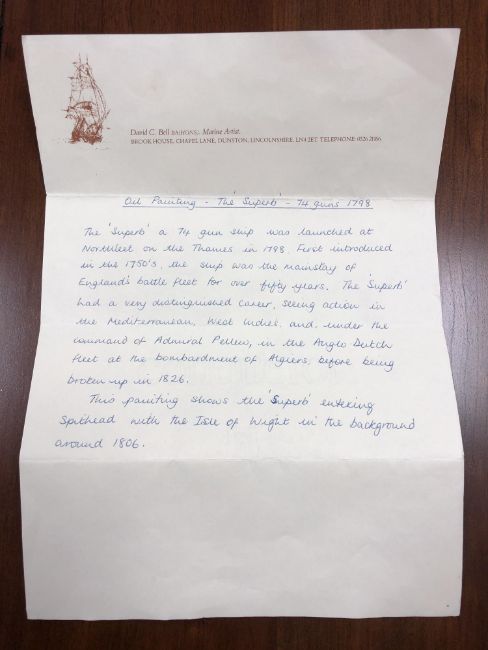 David C. Bell BA(HONS). Marine Artist.
BROOK HOUSE, CHAPEL LANE, DUNSTON, LINCOLNSHIRE. LN4 2ET. TELEPHONE: 0526 21186
Oil Painting - The 'Superb' - 74 guns 1798
The 'Superb' a 74 gun ship was launched at
Northfleet on the Thames in 1798. First introduced
in the 1750's, the ship was the mainstay of
England's battle fleet for over fifty years. The 'Superb'
had a very distinguished career, seeing action in
the Mediterranean, West Indies, and, under the
command of Admiral Pellew, in the Anglo Dutch
fleet at the bombardment of Algiers, before being
broken up in 1826.
This painting shows the 'Superb' entering
Spithead with the Isle of Wight in the background
around 1806.